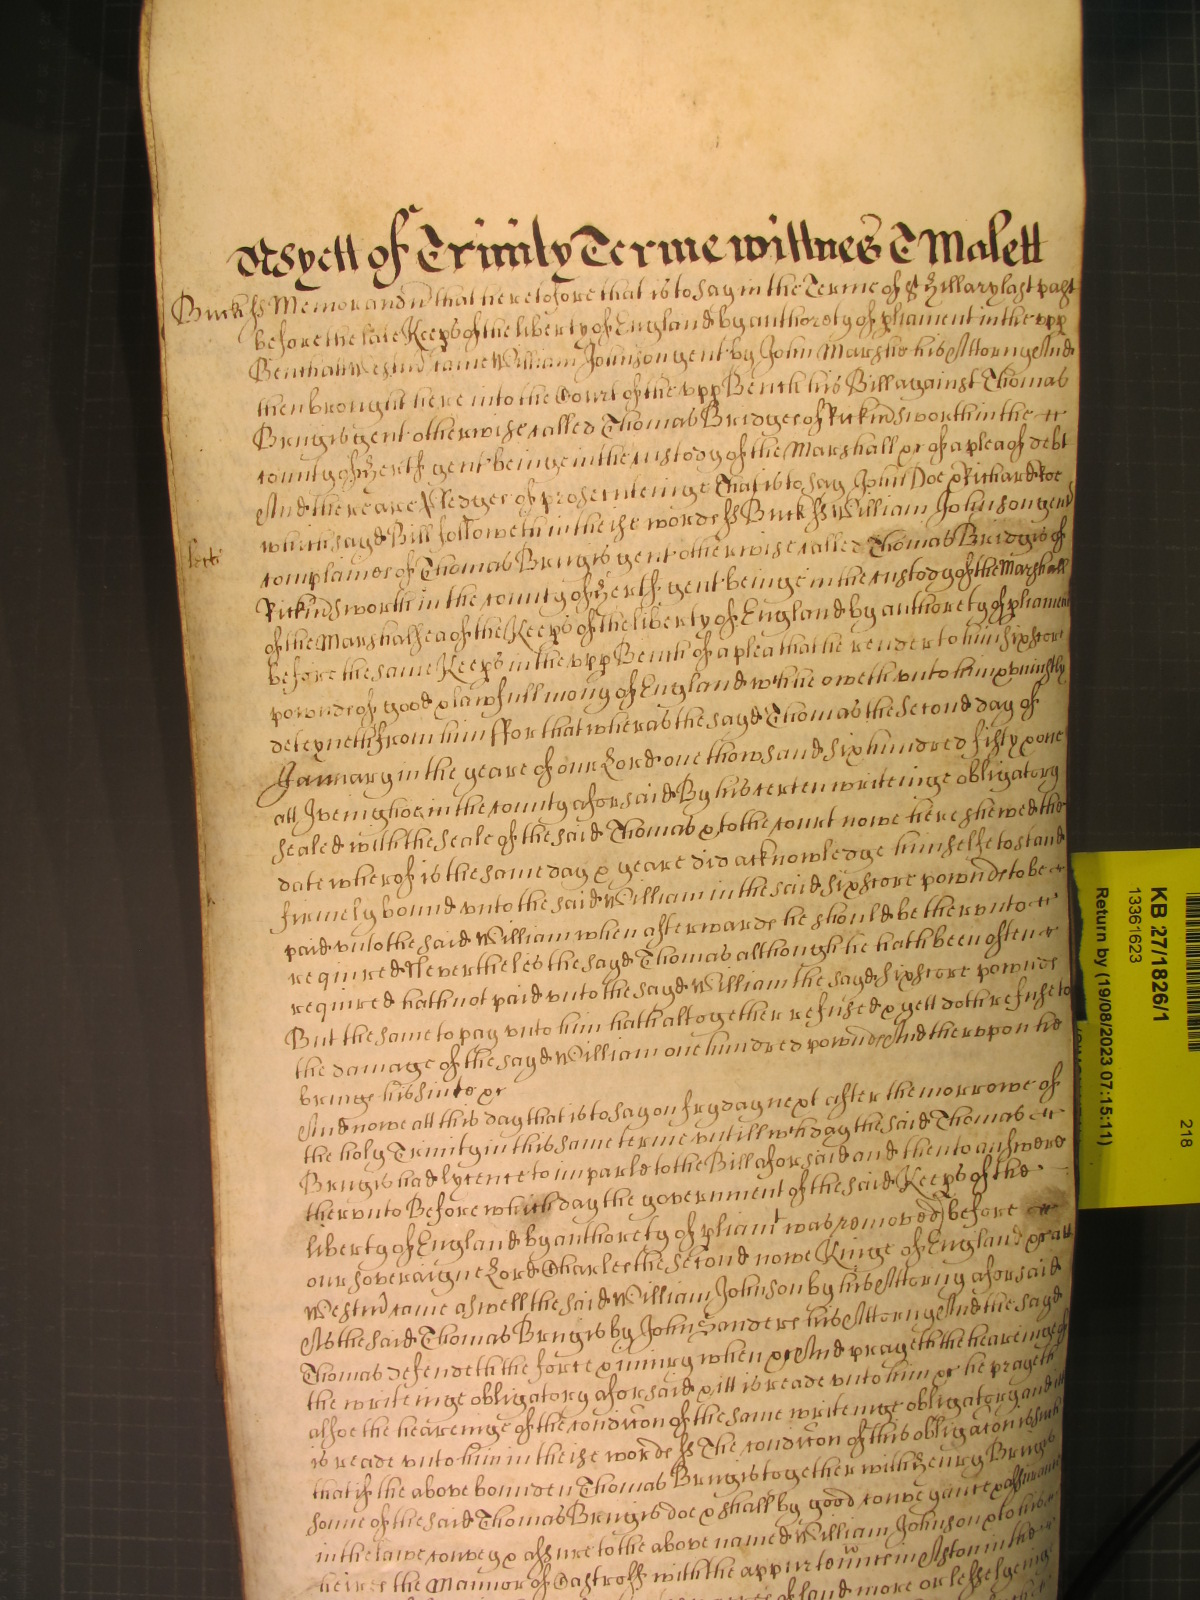 As yett of Trinity Terme wittnes T Malett
Buck ss Memorand that heretofore that is to say in the Terme of St Hillary last past
before the late Keeps of the liberty of England by authorety of pliament in the upp
Bench att Westm came William Johnson gent by John Marshe his Attorny And
then brought here into the Court of the upp Bench his Bill against Thomas
Brugis gent otherwise called Thomas Bridges of Rickmsworth in the
county of Hertf gent beinge in the custody of the Marshall &c of a plea of debt
And there are Pledges of prosecuteinge That is to say John Doe & Richard Roe
which sayd Bill followeth in theise words ss Buck ss William Johnson gent
complaines of Thomas Brugis gent otherwise called Thomas Bridgis of
Rickmsworth in the county of Hertf gent beinge in the custody of the Marshall
of the Marshalsea of the Keeps of the liberty of England by authorety of pliament
before the same Keeps in the upp Bench of a plea that he render to him sixscore
pownds of good & lawfull mony of England which he oweth unto him & uniustly
deteyneth from him ffor that wheras the sayd Thomas the second day of
January in the yeare of our Lord one thowsand six hundred fifty & one
att Iveinghoe in the county aforsaid By his certen writeinge obligatory
sealed with the seale of the said Thomas & to the court nowe here shewed the
date wherof is the same day & yeare did acknowledge himselfe to stand
firmely bound unto the said William in the said sixscore pownds to be
paid unto the said William when afterwards he should be therunto
required Neverthelesthe sayd Thomas although he hath been often
required hath not paid unto the sayd William the sayd sixscore pownds
But the same to pay unto him hath altogether refused & yett doth refuse to
the damage of the sayd William one hundred pownds And therupon he
bringe his suite &c
And nowe att this day that is to say on fryday next after the morrowe of
the holy Trinity in this same terme untill wch day the said Thomas
Brugis had lycence to imparle to the Bill aforsaid and then to answere
therunto Before which day the government of the said Keeps of the
liberty of England by authorety of pliamt was removed before
our soveraigne Lord Charles the second nowe Kinge of England &c att
Westm came aswell the said William Johnson by his Attorny aforsaid
As the said Thomas Brugis by John Sanders his Attorny And the sayd
Thomas defendeth the force & iniury when &c And prayeth the heareinge of
the writeinge obligatory aforsaid & itt is reade unto him &c he prayeth
alsoe the heareinge of the condicon of the same writeinge obligatory and itt
is reade unto him in theise words ss The condicon of this obligacon is such
that if the above bounden Thomas Brugis together with Henry Brugis
sonne of the said Thomas Brugis doe & shall by good conveyance & assurance
in the lawe convey & assure to the above named William Johnson & to his
heires the Mannor of Castross with the appurtennces in Aston in the
of land more or lesse lyeing